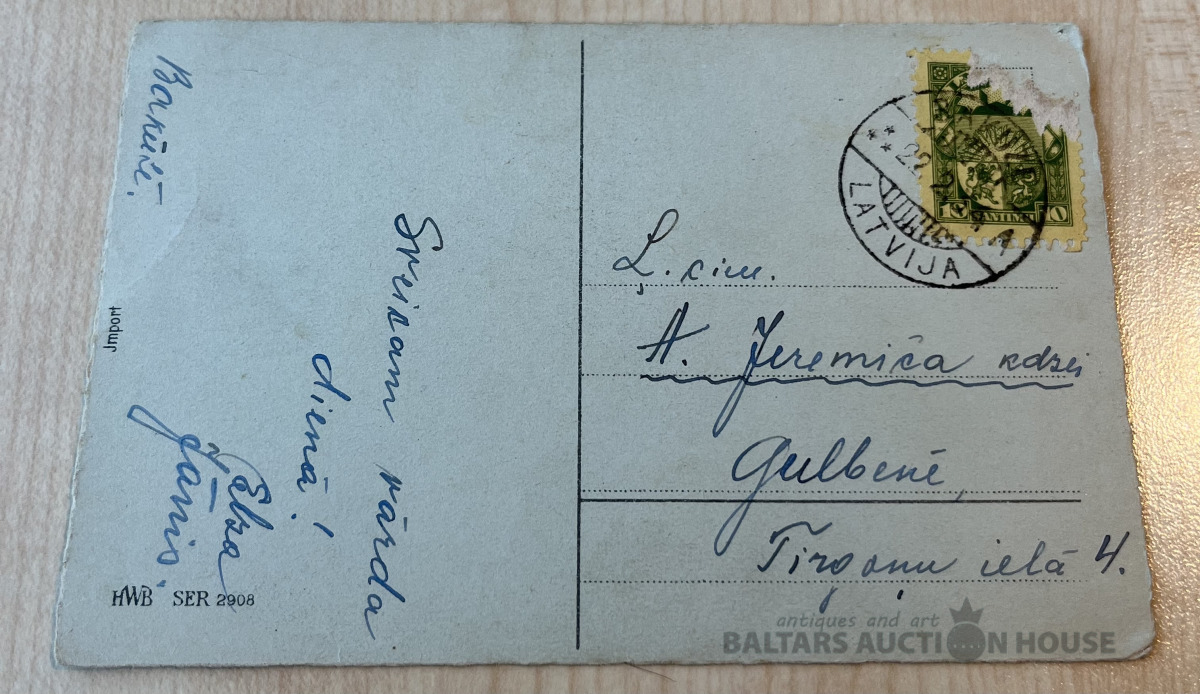 Bākūzē.
Sveicam vārda
dienā!
Elza
Jānis.
Jmport
HWB SER 2908
LATVIJA
10 SANTIMU 10
Ļ. cien.
A. Jeremiča kdzei
Gulbenē,
Tirgoņu ielā 4.
antiques and art
BALTARS AUCTION HOUSE